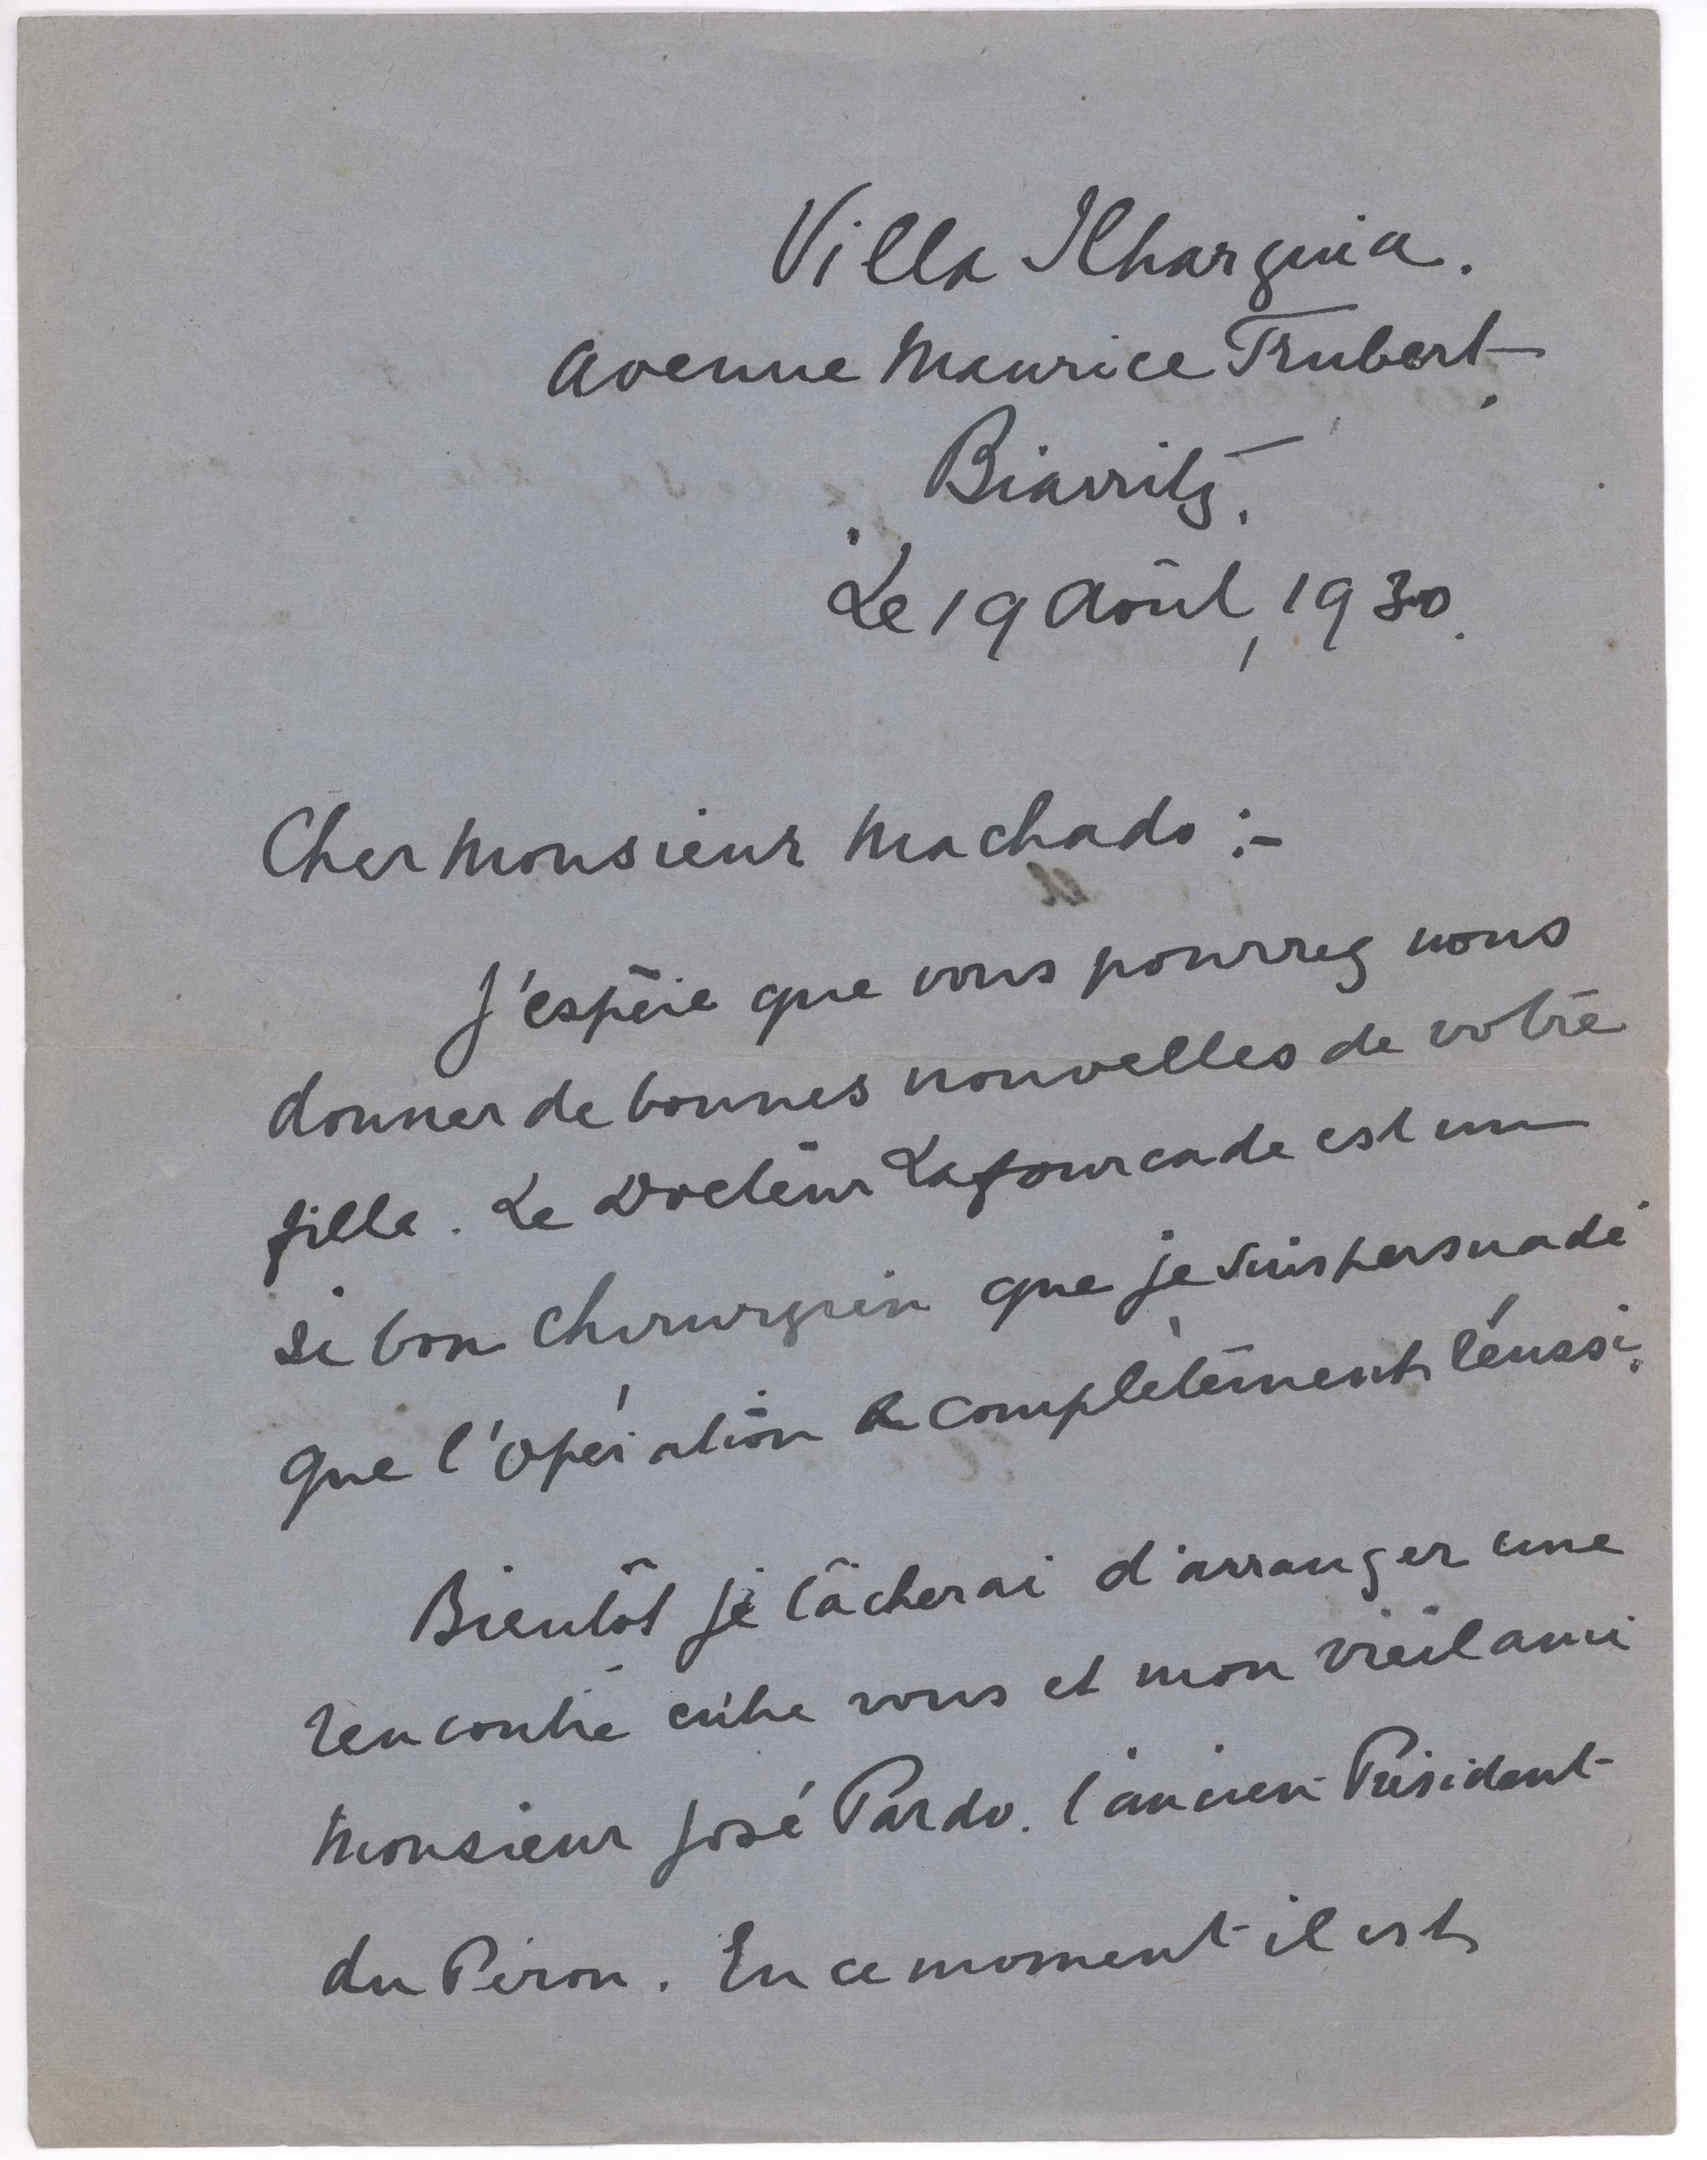 Villa Ilharguia.
Avenue Maurice Trubert.
Biarritz.
Le 19 Août, 1930.
Cher Monsieur Machado :-
J'espère que vous pourrez nous
donner de bonnes nouvelles de votre
fille. Le Docteur Lafourcade est un
si bon chirurgien que je suis persuadé
que l'opération a complètement réussi.
Bientôt je tâcherai d'arranger une
rencontre entre vous et mon vieil ami
Monsieur José Pardo. l'ancien Président
du Pérou. En ce moment il est